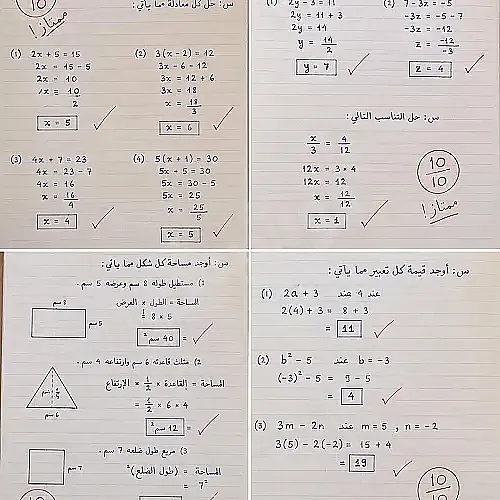 10
10
ممتاز!
س: حل كل معادلة مما يأتي:
(1) 2x + 5 = 15
2x = 15 - 5
2x = 10
x = 10
2
x = 5
(2) 3(x - 2) = 12
3x - 6 = 12
3x = 12 + 6
3x = 18
x = 18
3
x = 6
(3) 4x + 7 = 23
4x = 23 - 7
4x = 16
x = 16
4
x = 4
(4) 5(x + 1) = 30
5x + 5 = 30
5x = 30 - 5
5x = 25
x = 25
5
x = 5
(1) 2y - 3 = 11
2y = 11 + 3
2y = 14
y = 14
2
y = 7
(2) 7 - 3z = -5
-3z = -5 - 7
-3z = -12
z = -12
-3
z = 4
س: حل التناسب التالي:
x/3 = 4/12
12x = 3 × 4
12x = 12
x = 12
12
x = 1
10
10
ممتاز!
س: أوجد مساحة كل شكل مما يأتي:
1) مستطيل طوله 8 سم وعرضه 5 سم.
8 سم
5 سم
المساحة = الطول × العرض
= 8 × 5
= 40 سم²
2) مثلث قاعدته 6 سم وارتفاعه 4 سم.
6 سم
المساحة = القاعدة × 1/2 × الارتفاع
= 1/2 × 6 × 4
= 12 سم²
3) مربع طول ضلعه 7 سم.
7 سم
المساحة = (طول الضلع)²
= 7²
10
س: أوجد قيمة كل تعبير مما يأتي:
(1) 2a + 3 عند 4 عند
2(4) + 3 = 8 + 3
= 11
(2) b² - 5 عند b = -3
(-3)² - 5 = 9 - 5
= 4
(3) 3m - 2n عند m = 5 , n = -2
3(5) - 2(-2) = 15 + 4
= 19
10
10